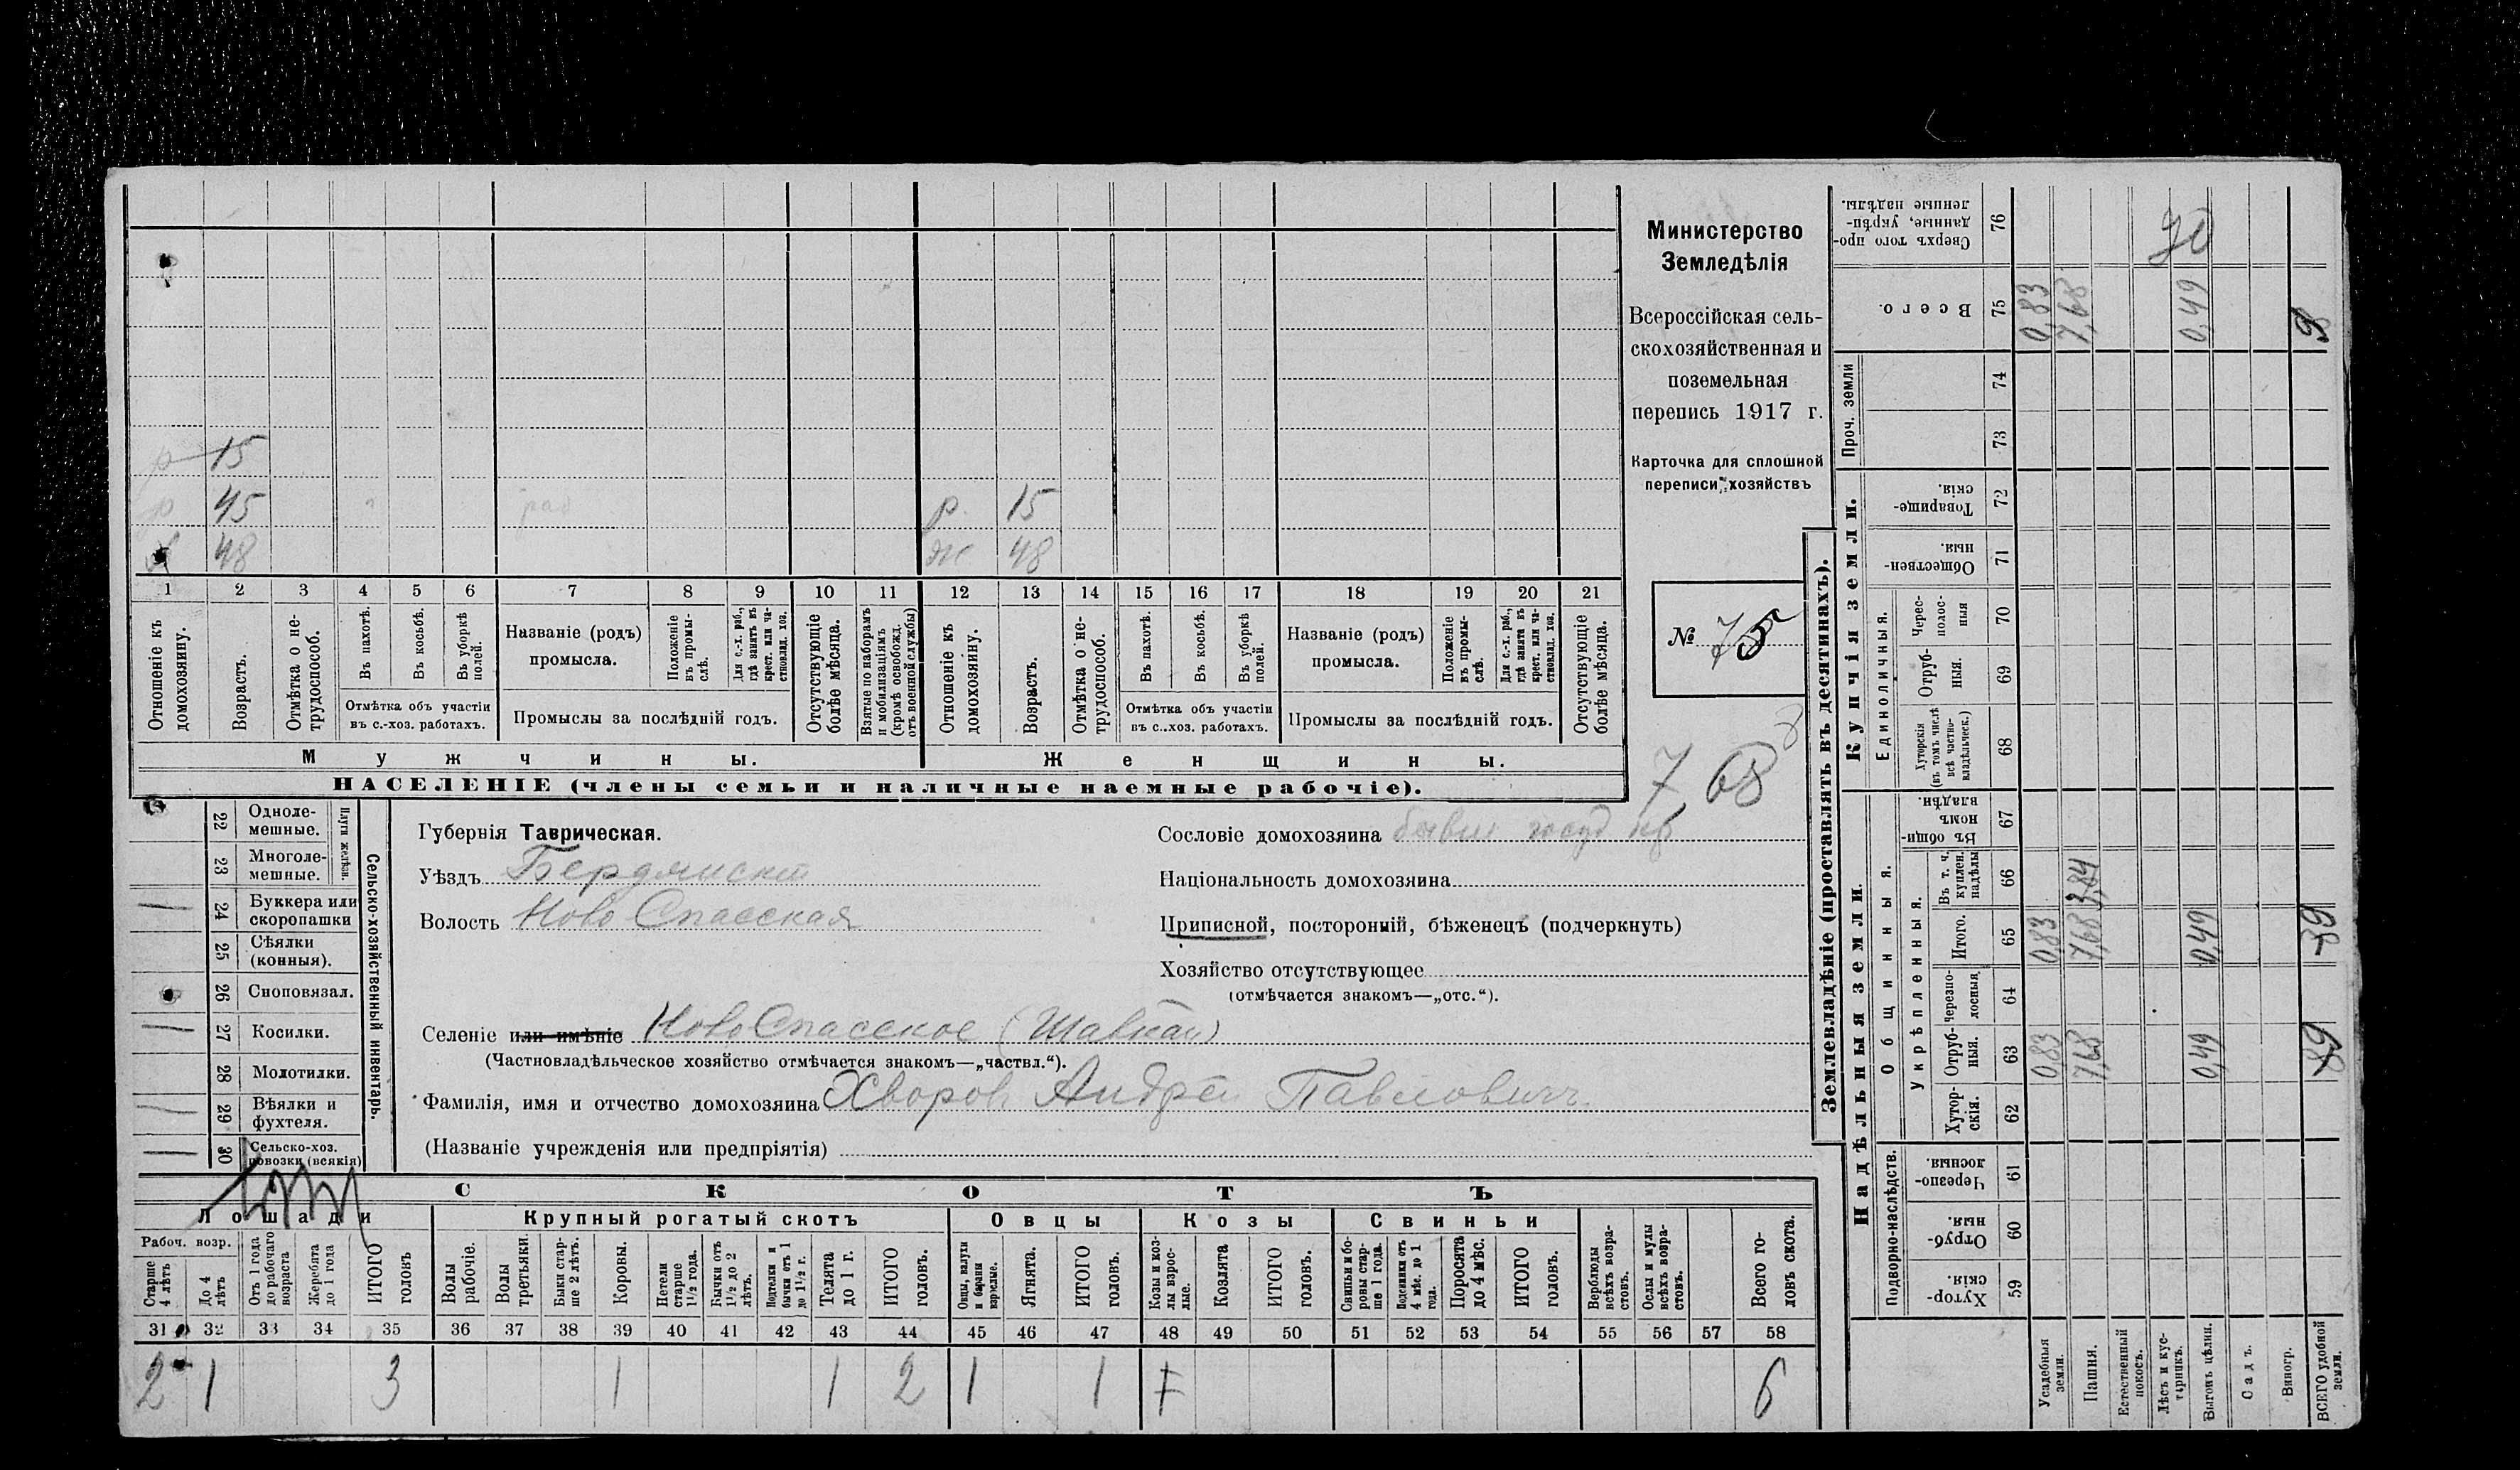 Министерство
Земледѣлія
Всероссійская сель-
скохозяйственная и
поземельная
перепись 1917 г.
Карточка для сплошной
переписи хозяйствъ
№ 75
7,68
р 15
р 45
48
р. 15
ж 48
1 2 3 4 5 6 7 8 9 10 11 12 13 14 15 16 17 18 19 20 21
Отношеніе къ домохозяину.
Возрастъ.
Отмѣтка о не-трудоспособ.
Въ пахотѣ.
Въ косьбѣ.
Въ уборкѣ полей.
Отмѣтка объ участіи
въ с.-хоз. работахъ.
Названіе (родъ)
промысла.
Положеніе въ промы-слѣ.
Для с.-х. раб., гдѣ занятъ въ крест. или ча-стновлад. хоз.
Промыслы за послѣдній годъ.
Отсутствующіе болѣе мѣсяца.
Взятые по наборамъ и мобилизаціямъ (кромѣ освобожд. отъ военной службы)
Отношеніе къ домохозяину.
Возрастъ.
Отмѣтка о не-трудоспособ.
Въ пахотѣ.
Въ косьбѣ.
Въ уборкѣ полей.
Отмѣтка объ участіи
въ с.-хоз. работахъ.
Названіе (родъ)
промысла.
Положеніе въ промы-слѣ.
Для с.-х. раб., гдѣ занята въ крест. или ча-стновлад. хоз.
Промыслы за послѣдній годъ.
Отсутствующіе болѣе мѣсяца.
Мужчины.
Женщины.
НАСЕЛЕНІЕ (члены семьи и наличные наемные рабочіе).
Сельско-хозяйственный инвентарь.
Плуги желѣзн.
22 Одноле-мешные.
23 Многоле-мешные.
24 Буккера или скоропашки
25 Сѣялки (конныя).
26 Сноповязал.
27 Косилки.
28 Молотилки.
29 Вѣялки и фухтеля.
30 Сельско-хоз. повозки (всякія)
Губернія Таврическая.
Уѣздъ Бердянскій
Волость Ново Спасская
Сословіе домохозяина бывш госуд кр
Національность домохозяина
Приписной, посторонній, бѣженецъ (подчеркнуть)
Хозяйство отсутствующее
(отмѣчается знакомъ—„отс.“).
Селеніе или имѣніе НовоСпасское (Шавкай)
(Частновладѣльческое хозяйство отмѣчается знакомъ—„частвл.“).
Фамилія, имя и отчество домохозяина Хворов Андрей Павлович
(Названіе учрежденія или предпріятія)
СКОТЪ
Лошади
Крупный рогатый скотъ
Овцы
Козы
Свиньи
Рабоч. возр.
Старше 4 лѣтъ
До 4 лѣтъ
Отъ 1 года до рабочаго возраста
Жеребята до 1 года
ИТОГО головъ
Волы рабочіе.
Волы третьяки.
Быки стар-ше 2 лѣтъ.
Коровы.
Нетели старше 1 1/2 года.
Бычки отъ 1 1/2 до 2 лѣтъ.
Подтелки и бычки отъ 1 до 1 1/2 г.
Телята до 1 г.
ИТОГО головъ.
Овцы, валухи и бараны взрослые.
Ягнята.
ИТОГО головъ.
Козы и коз-лы взрос-лые.
Козлята
ИТОГО головъ.
Свиньи и бо-ровы стар-ше 1 года.
Подсвинки отъ 4 мѣс. до 1 года.
Поросята до 4 мѣс.
ИТОГО головъ.
Верблюды всѣхъ возра-стовъ.
Ослы и мулы всѣхъ возра-стовъ.
Всего го-ловъ скота.
31 32 33 34 35 36 37 38 39 40 41 42 43 44 45 46 47 48 49 50 51 52 53 54 55 56 57 58
2 1 3 1 1 2 1 1 6
Землевладѣніе (проставлять въ десятинахъ).
Надѣльныя земли.
Купчія земли.
Проч. земли
Подворно-наслѣдств.
Общинныя.
Укрѣпленныя.
Единоличныя.
Хутор-скія. 59
Отруб-ныя. 60
Черезпо-лосныя. 61
Хутор-скія. 62
Отруб-ныя. 63
Черезпо-лосныя 64
Итого. 65
Въ т. ч. куплен. надѣлы 66
Въ общи-номъ владѣн. 67
Хуторскія (въ томъ числѣ всѣ частно-владѣльческ.) 68
Отруб-ныя. 69
Черес-полос-ныя 70
Обществен-ныя. 71
Товарище-скія. 72
73
74
Всего. 75
Сверхъ того про-данные, укрѣп-ленные надѣлы. 76
Усадебныя земли. 0,83 0,83 0,83
Пашня. 7,68 7,68 3,84 7,68
Естественный покосъ.
Лѣсъ и кус-тарникъ.
Выгонъ цѣлин. 0,49 0,49 0,49
Садъ.
Виногр.
ВСЕГО удобной земли.